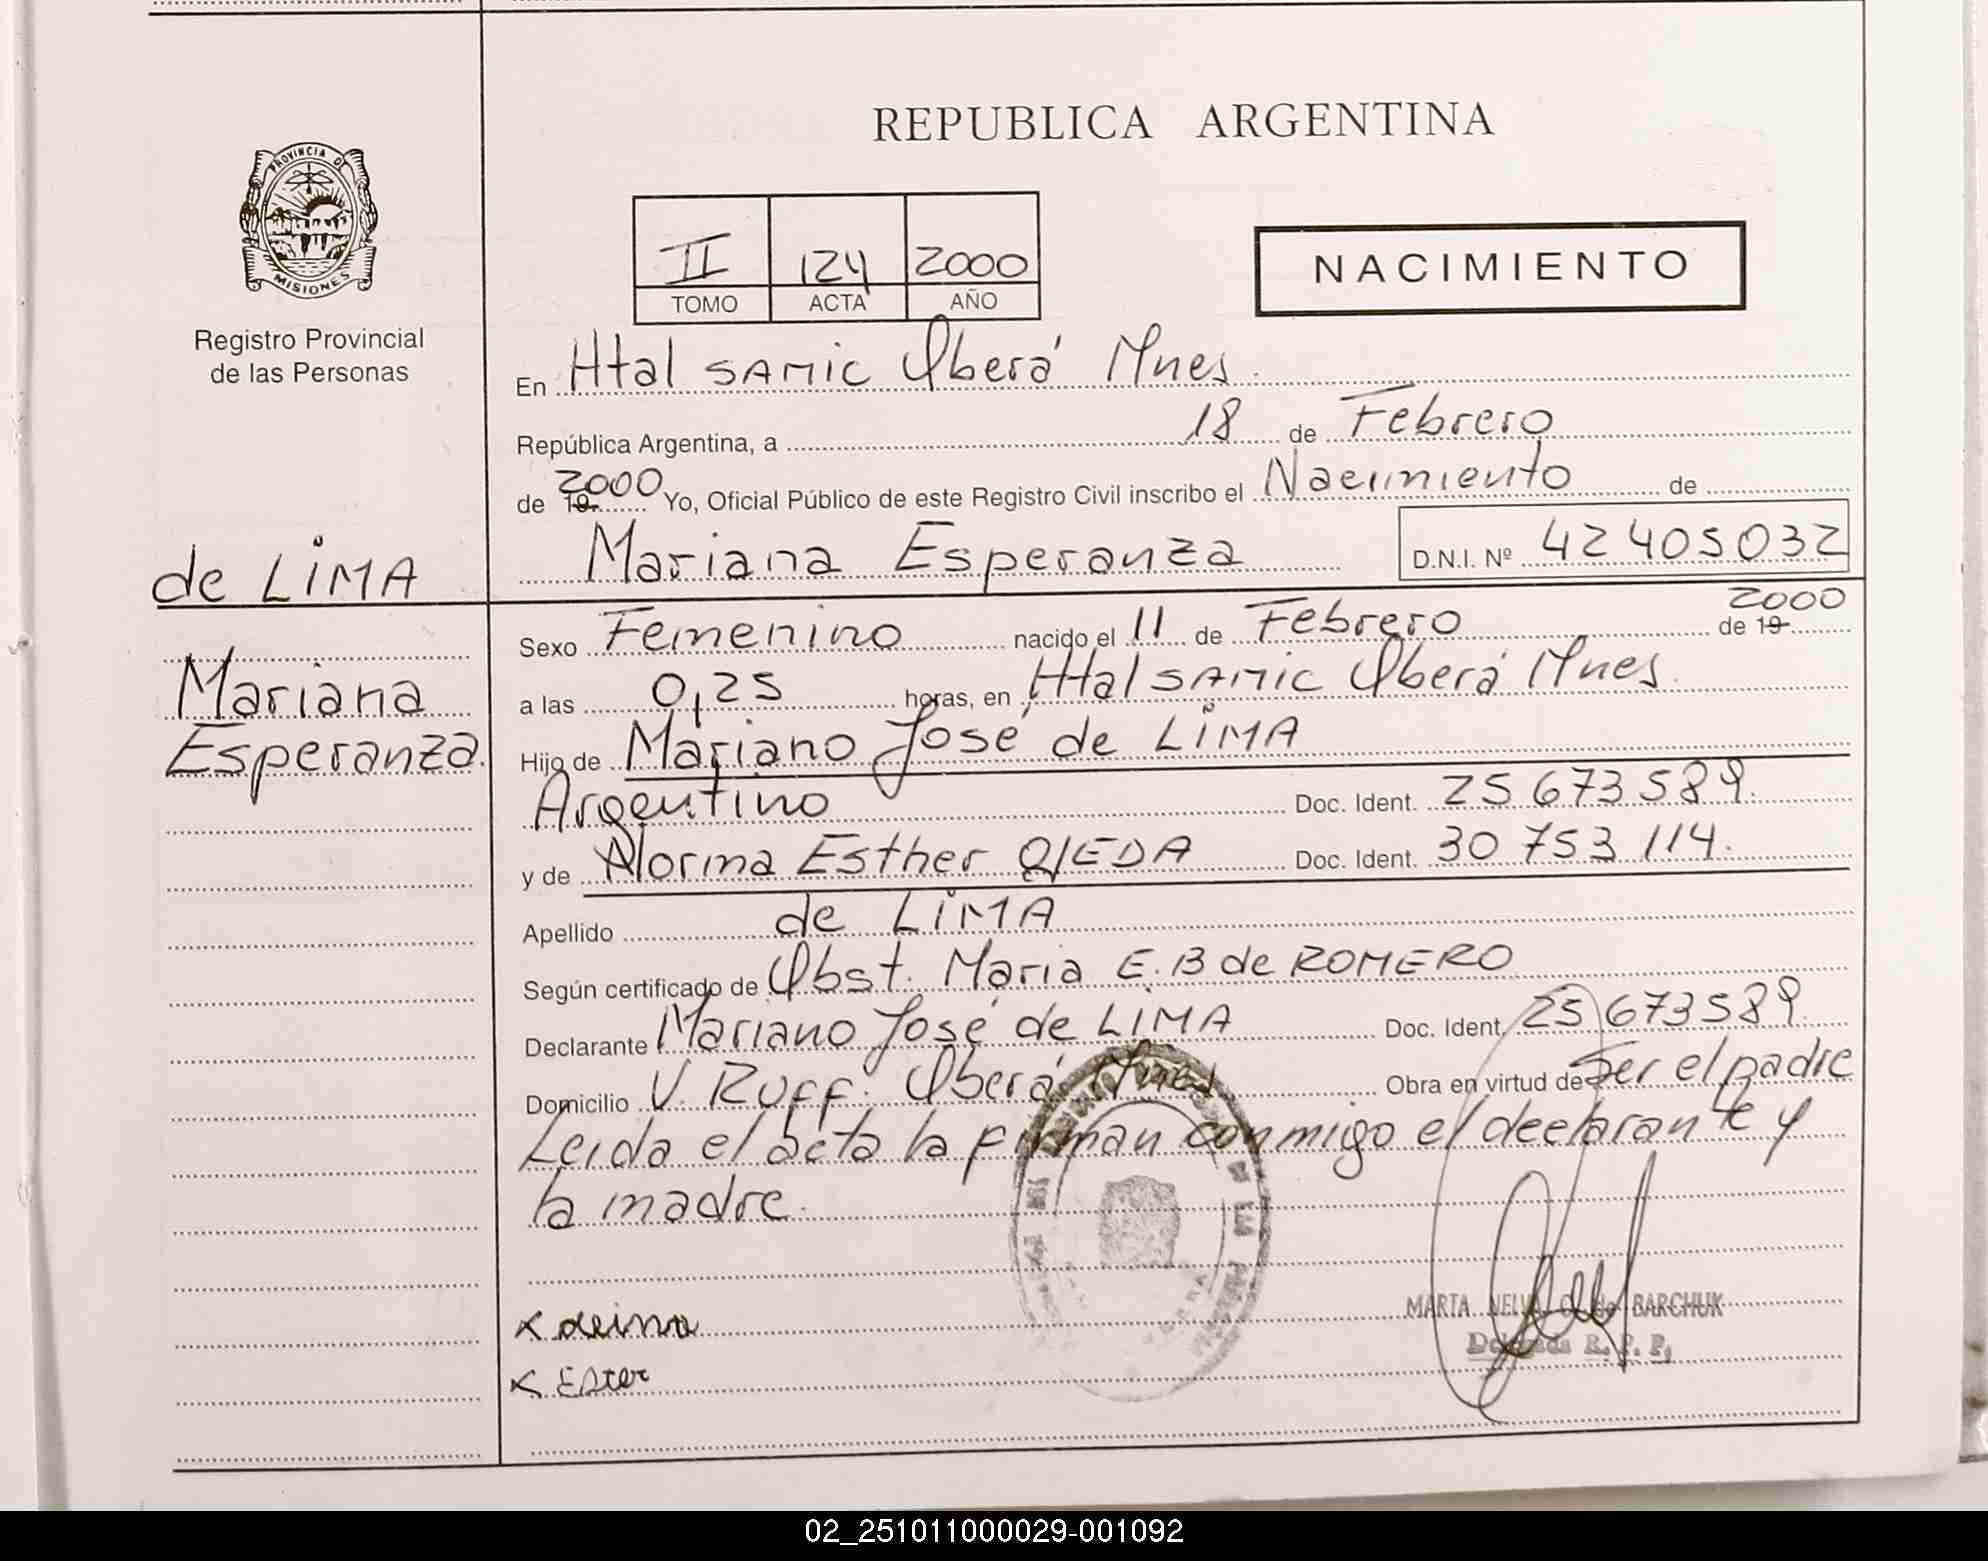 REPUBLICA ARGENTINA
PROVINCIA DE
MISIONES
Registro Provincial
de las Personas
II 124 2000
TOMO ACTA AÑO
NACIMIENTO
En Htal SAMIC Oberá Mnes.
República Argentina, a 18 de Febrero
de 19 2000 Yo, Oficial Público de este Registro Civil inscribo el Nacimiento de
Mariana Esperanza D.N.I. Nº 42405032
de LIMA
Mariana
Esperanza.
Sexo Femenino nacido el 11 de Febrero de 19 2000
a las 0,25 horas, en Htal SAMIC Oberá Mnes.
Hijo de Mariano José de LIMA
Argentino Doc. Ident. 25 673 589.
y de Norma Esther OJEDA Doc. Ident. 30 753 114.
Apellido de LIMA
Según certificado de Obst. Maria E. B de ROMERO
Declarante Mariano José de LIMA Doc. Ident. 25 673 589.
Domicilio V. Ruff. Oberá Mnes Obra en virtud de Ser el padre
Leida el acta la firman conmigo el declarante y
la madre.
x deima
x Ester
MARTA NELVA O. de BARCHUK
Delegada R. P. P.
02_251011000029-001092